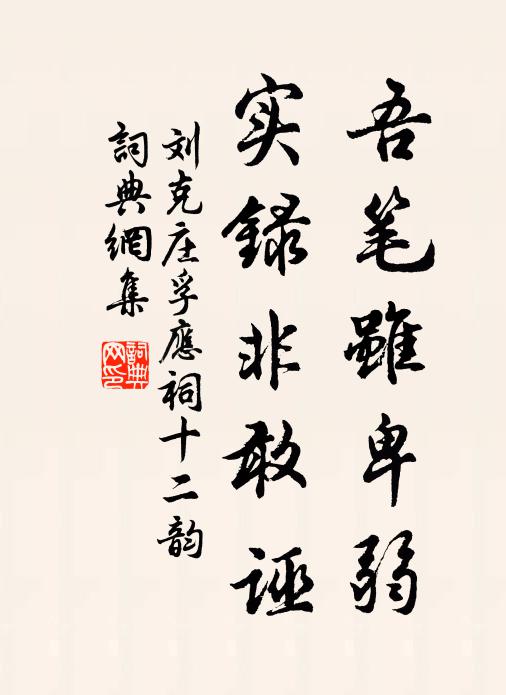 吾笔雖卑弱
实録非敢诬
刘克庄孚應祠十二韵
詞典網集
詞典网印